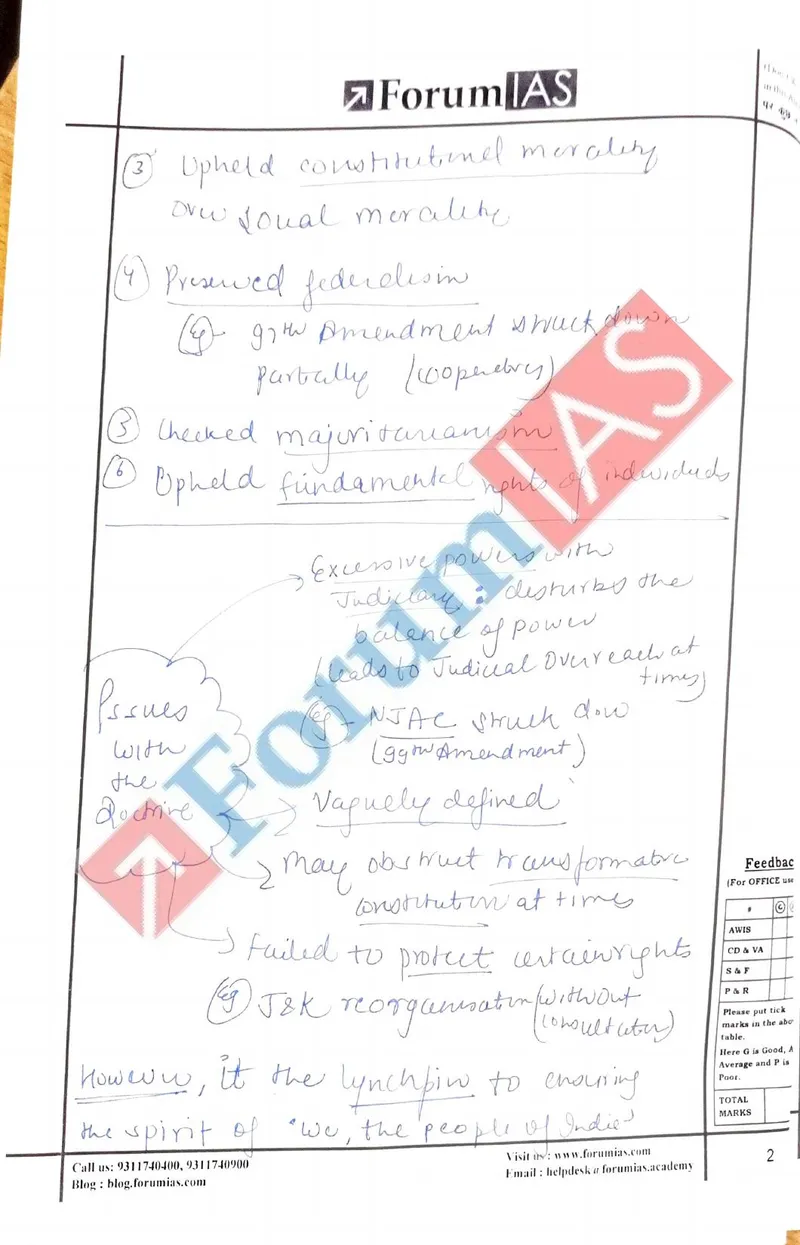 ForumIAS
③ Upheld constitutional morality
over social morality
④ Preserved federalism
Eg - 97th Amendment struck down
partially (cooperatives)
⑤ Checked majoritarianism
⑥ Upheld fundamental rights of individuals
Excessive powers with
Judiciary : disturbs the
balance of power
(leads to Judicial Overreach at
times)
Eg - NJAC struck down
(99th Amendment)
Issues
with
the
doctrine
Vaguely defined
May obstruct transformative
constitution at times
Failed to protect certain rights
Eg J&K reorganisation (without
consultation)
However, it the lynchpin to ensuring
the spirit of "We, the people of India"
ForumIAS
Feedbac
(For OFFICE use
#
AWIS
CD & VA
S & F
P & R
Please put tick
marks in the abo
table.
Here G is Good, A
Average and P is
Poor.
TOTAL
MARKS
Call us: 9311740400, 9311740900
Blog : blog.forumias.com
Visit us : www.forumias.com
Email : helpdesk@forumias.academy
2